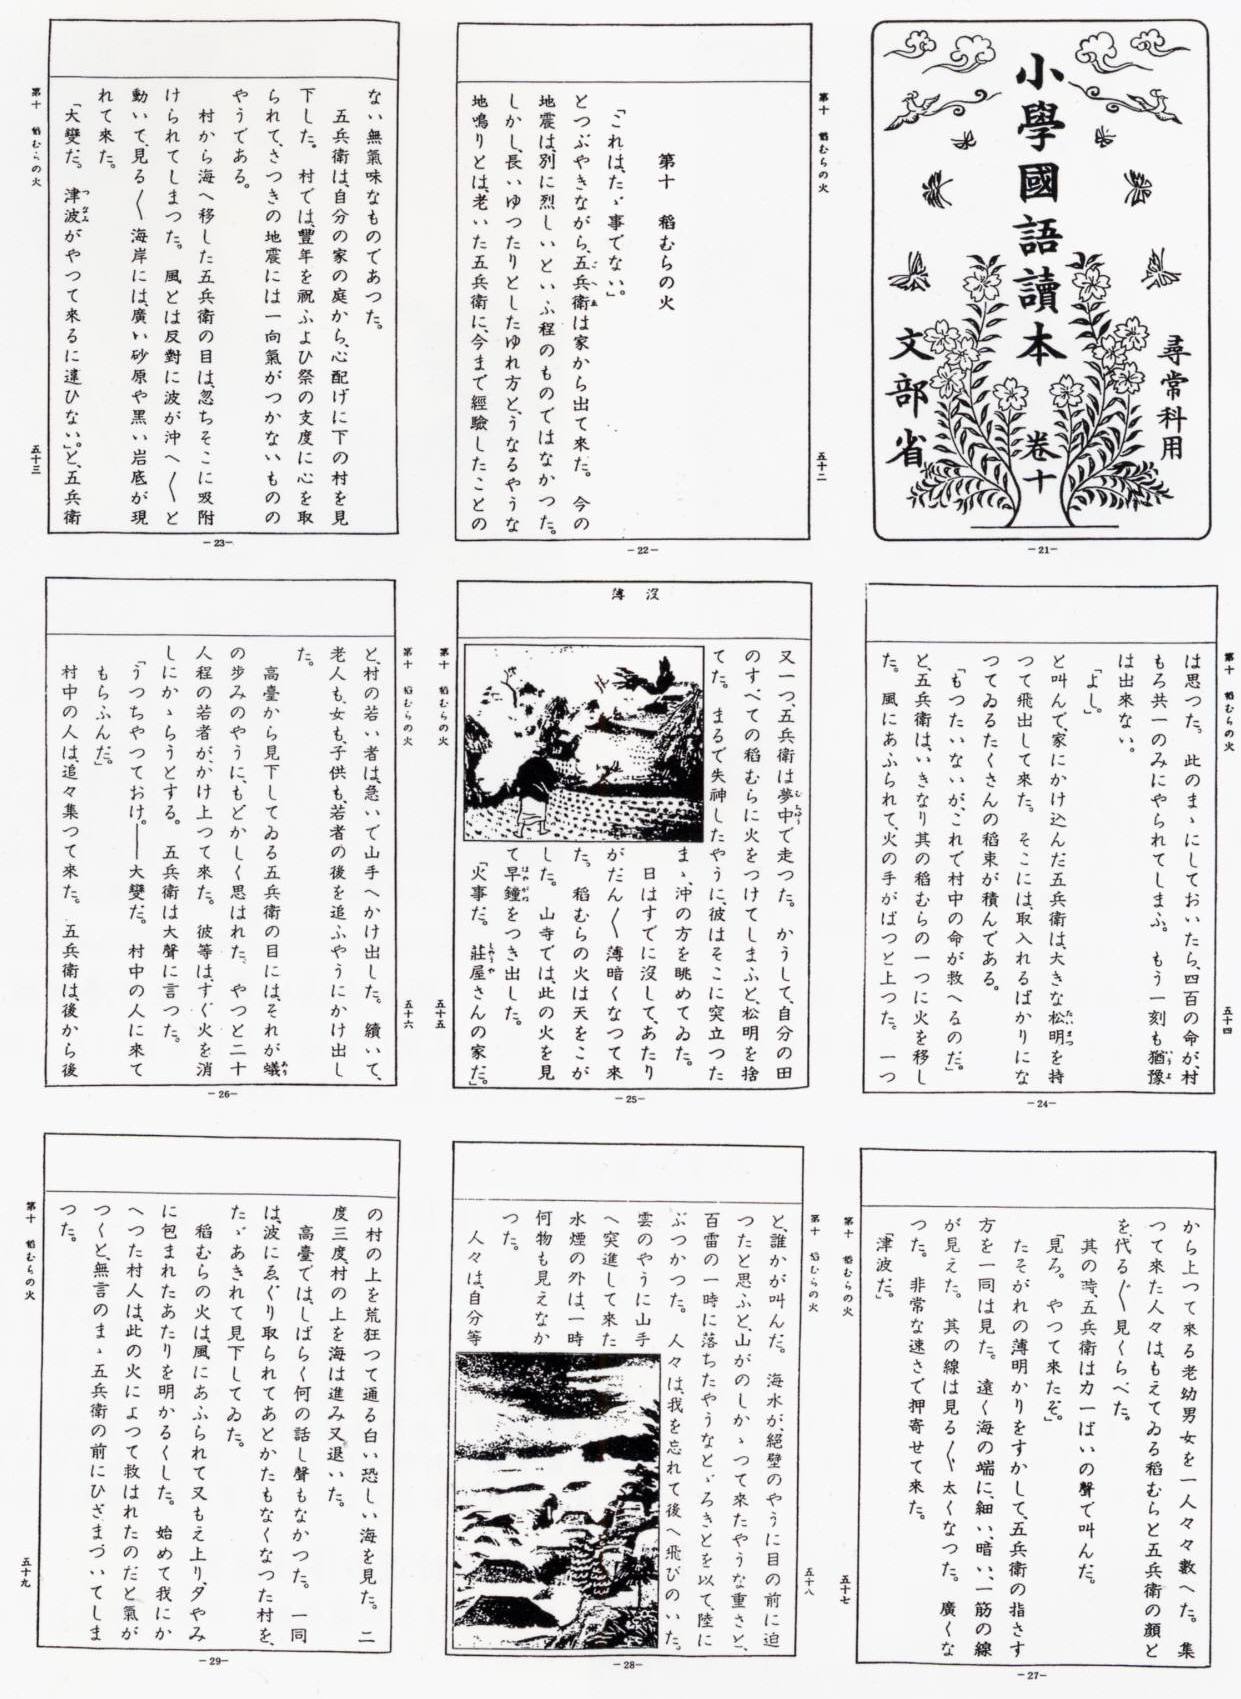 小學國語讀本
尋常科用
卷十
文部省
―21―
第十 稻むらの火
五十二
第十 稻むらの火
「これは、たゞ事でない。」
とつぶやきながら、五兵衞は家から出て來た。今の
地震は、別に烈しいといふ程のものではなかつた。
しかし、長いゆつたりとしたゆれ方と、うなるやうな
地鳴りとは、老いた五兵衞に、今まで經驗したことの
―22―
ない無氣味なものであつた。
五兵衞は、自分の家の庭から、心配げに下の村を見
下した。村では、豐年を祝ふよひ祭の支度に心を取
られて、さつきの地震には一向氣がつかないものの
やうである。
村から海へ移した五兵衞の目は、忽ちそこに吸附
けられてしまつた。風とは反對に波が沖へ〱と
動いて、見る〱海岸には、廣い砂原や黑い岩底が現
れて來た。
「大變だ。津波がやつて來るに違ひない。」と、五兵衞
第十 稻むらの火
五十三
―23―
第十 稻むらの火
五十四
は思つた。此のまゝにしておいたら、四百の命が、村
もろ共一のみにやられてしまふ。もう一刻も猶豫
は出來ない。
「よし。」
と叫んで、家にかけ込んだ五兵衞は、大きな松明を持
つて飛出して來た。そこには、取入れるばかりにな
つてゐるたくさんの稻束が積んである。
「もつたいないが、これで村中の命が救へるのだ。」
と、五兵衞は、いきなり其の稻むらの一つに火を移し
た。風にあふられて、火の手がぱつと上つた。一つ
―24―
沒 薄
又一つ、五兵衞は夢中で走つた。かうして、自分の田
のすべての稻むらに火をつけてしまふと、松明を捨
てた。まるで失神したやうに、彼はそこに突立つた
まゝ、沖の方を眺めてゐた。
日はすでに沒して、あたり
がだん〱薄暗くなつて來
た。稻むらの火は天をこが
した。山寺では、此の火を見
て早鐘をつき出した。
「火事だ。莊屋さんの家だ。」
第十 稻むらの火
五十五
―25―
第十 稻むらの火
五十六
と、村の若い者は、急いで山手へかけ出した。續いて、
老人も、女も、子供も、若者の後を追ふやうにかけ出し
た。
高臺から見下してゐる五兵衞の目には、それが蟻
の歩みのやうに、もどかしく思はれた。やつと二十
人程の若者が、かけ上つて來た。彼等は、すぐ火を消
しにかゝらうとする。五兵衞は大聲に言つた。
「うつちやつておけ。――大變だ。村中の人に來て
もらふんだ。」
村中の人は、追々集つて來た。五兵衞は、後から後
―26―
から上つて來る老幼男女を一人々々數へた。集
つて來た人々は、もえてゐる稻むらと五兵衞の顏と
を、代る〲見くらべた。
其の時、五兵衞は力一ぱいの聲で叫んだ。
「見ろ。やつて來たぞ。」
たそがれの薄明かりをすかして、五兵衞の指さす
方を一同は見た。遠く海の端に、細い、暗い、一筋の線
が見えた。其の線は見る〱太くなつた。廣くな
つた。非常な速さで押寄せて來た。
「津波だ。」
第十 稻むらの火
五十七
―27―
第十 稻むらの火
五十八
と、誰かが叫んだ。海水が、絕壁のやうに目の前に迫
つたと思ふと、山がのしかゝつて來たやうな重さと、
百雷の一時に落ちたやうなとゞろきとを以て、陸に
ぶつかつた。人々は、我を忘れて後へ飛びのいた。
雲のやうに山手
へ突進して來た
水煙の外は、一時
何物も見えなか
つた。
人々は、自分等
―28―
の村の上を荒狂つて通る白い恐しい海を見た。二
度三度、村の上を海は進み又退いた。
高臺では、しばらく何の話し聲もなかつた。一同
は、波にゑぐり取られてあとかたもなくなつた村を、
たゞあきれて見下してゐた。
稻むらの火は、風にあふられて又もえ上り、夕やみ
に包まれたあたりを明かるくした。始めて我にか
へつた村人は、此の火によつて救はれたのだと氣が
つくと、無言のまゝ五兵衞の前にひざまづいてしま
つた。
第十 稻むらの火
五十九
―29―